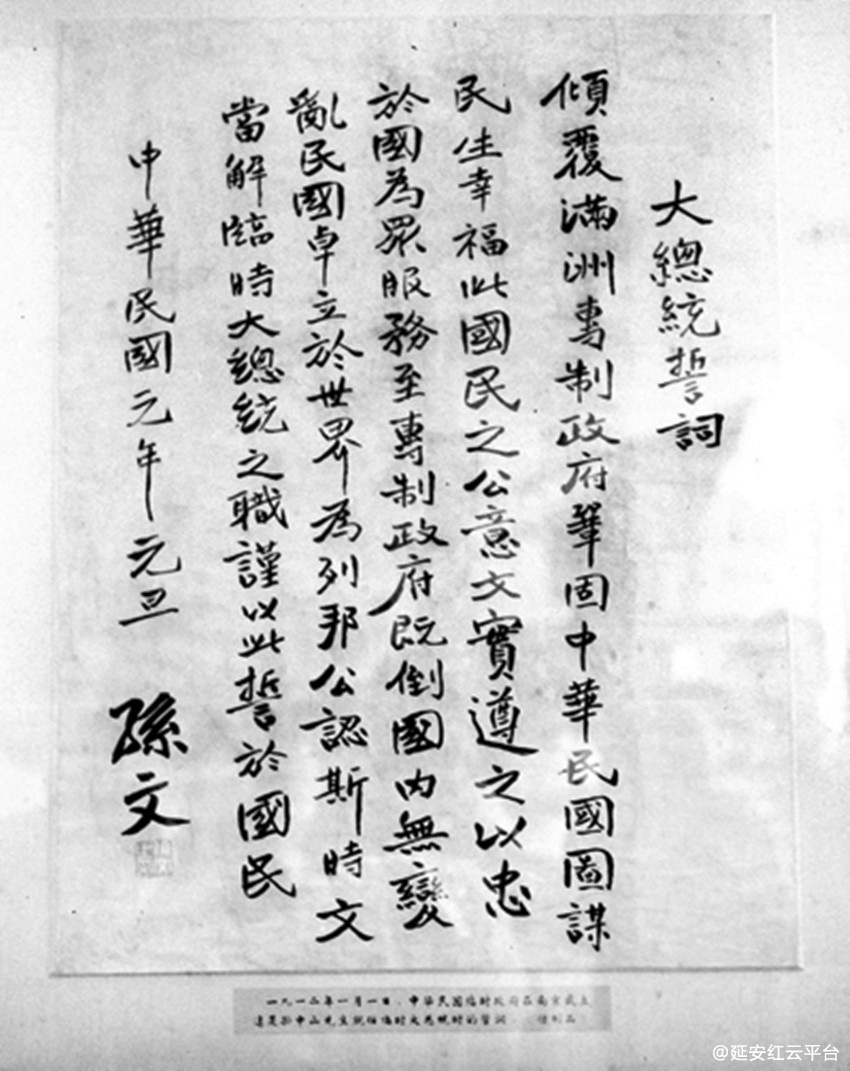 大總統誓詞
傾覆滿洲專制政府鞏固中華民國圖謀
民生幸福此國民之公意文實遵之以忠
於國為眾服務至專制政府既倒國內無變
亂民國卓立於世界為列邦公認斯時文
當解臨時大總統之職謹以此誓於國民
中華民國元年元旦
孫文
一九一二年一月一日,中华民国临时政府在南京成立
这是孙中山先生就任临时大总统时的誓词。(复制品)
@延安红云平台